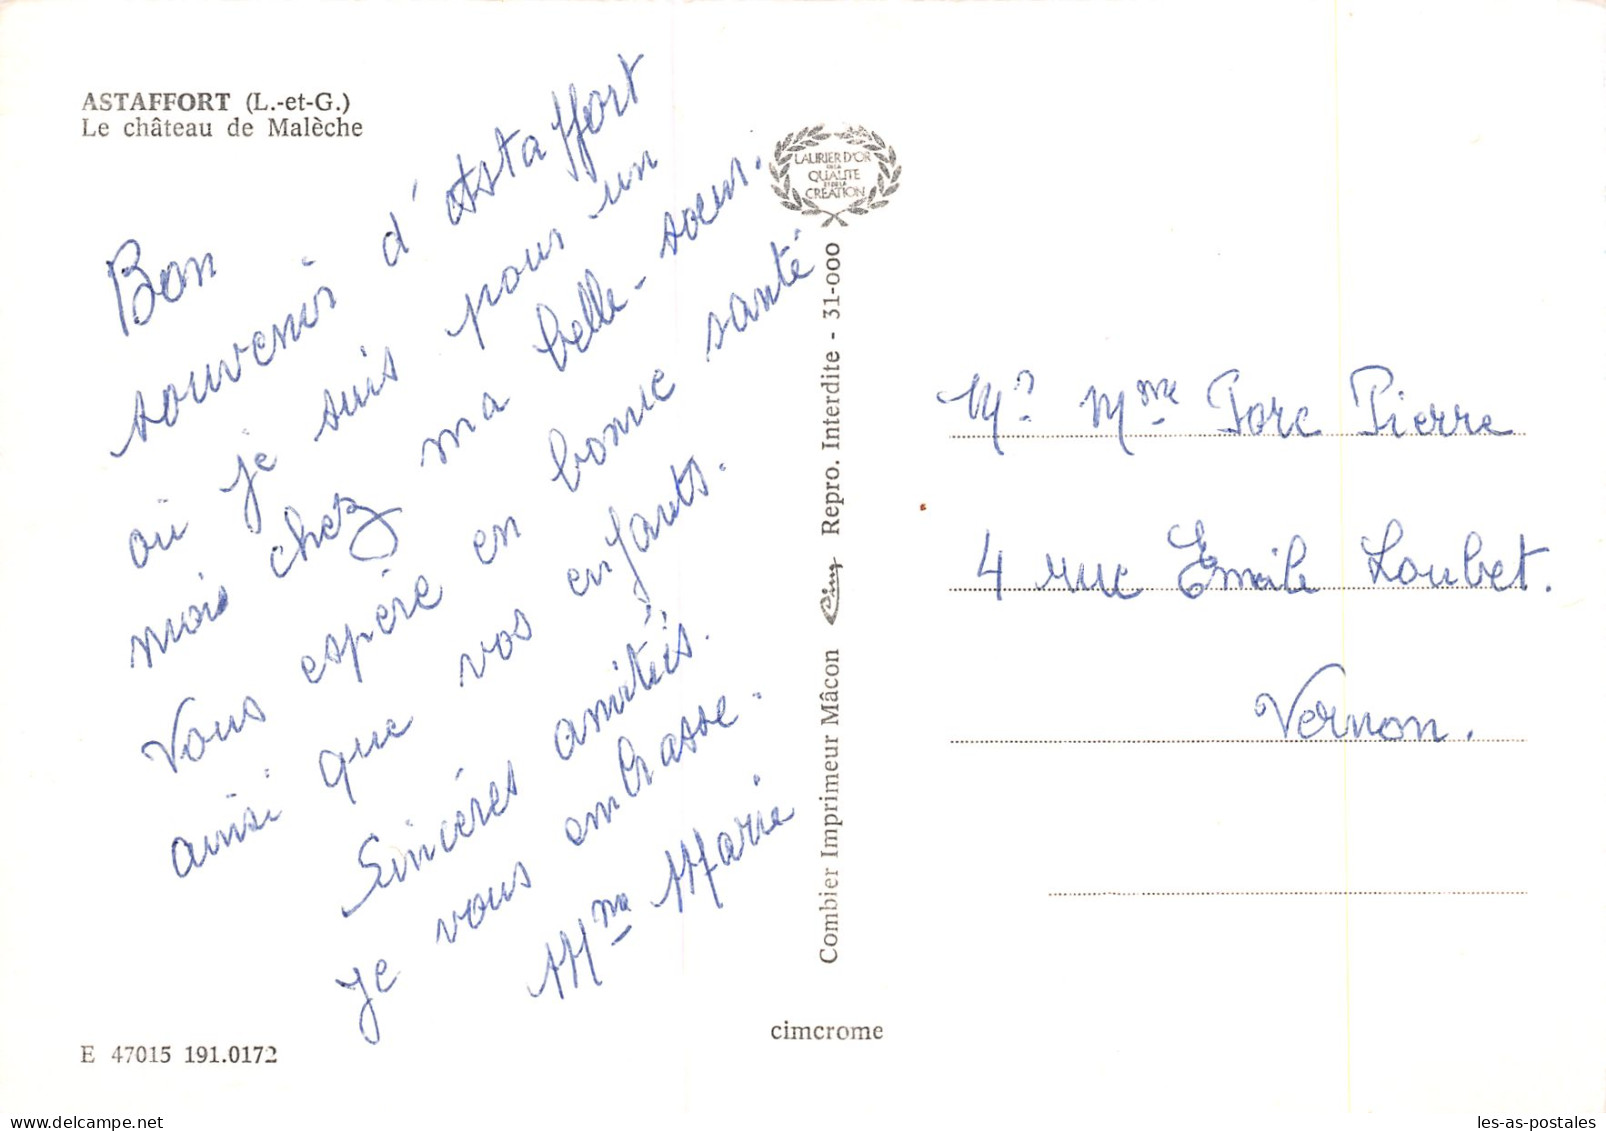 ASTAFFORT (L.-et-G.)
Le château de Malèche
Bon
souvenir d'Astaffort
où je suis pour un
mois chez ma belle-sœur.
Vous espère en bonne santé
ainsi que vos enfants.
Sincéres amitiés.
je vous embrasse.
Mme Marie
E 47015 191.0172
LAURIER D'OR
DE LA
QUALITE
ET DE LA
CREATION
Combier Imprimeur Mâcon Cim Repro. Interdite - 31-000
cimcrome
Mr Mme Porc Pierre
4 rue Emile Loubet.
Vernon.
les-as-postales